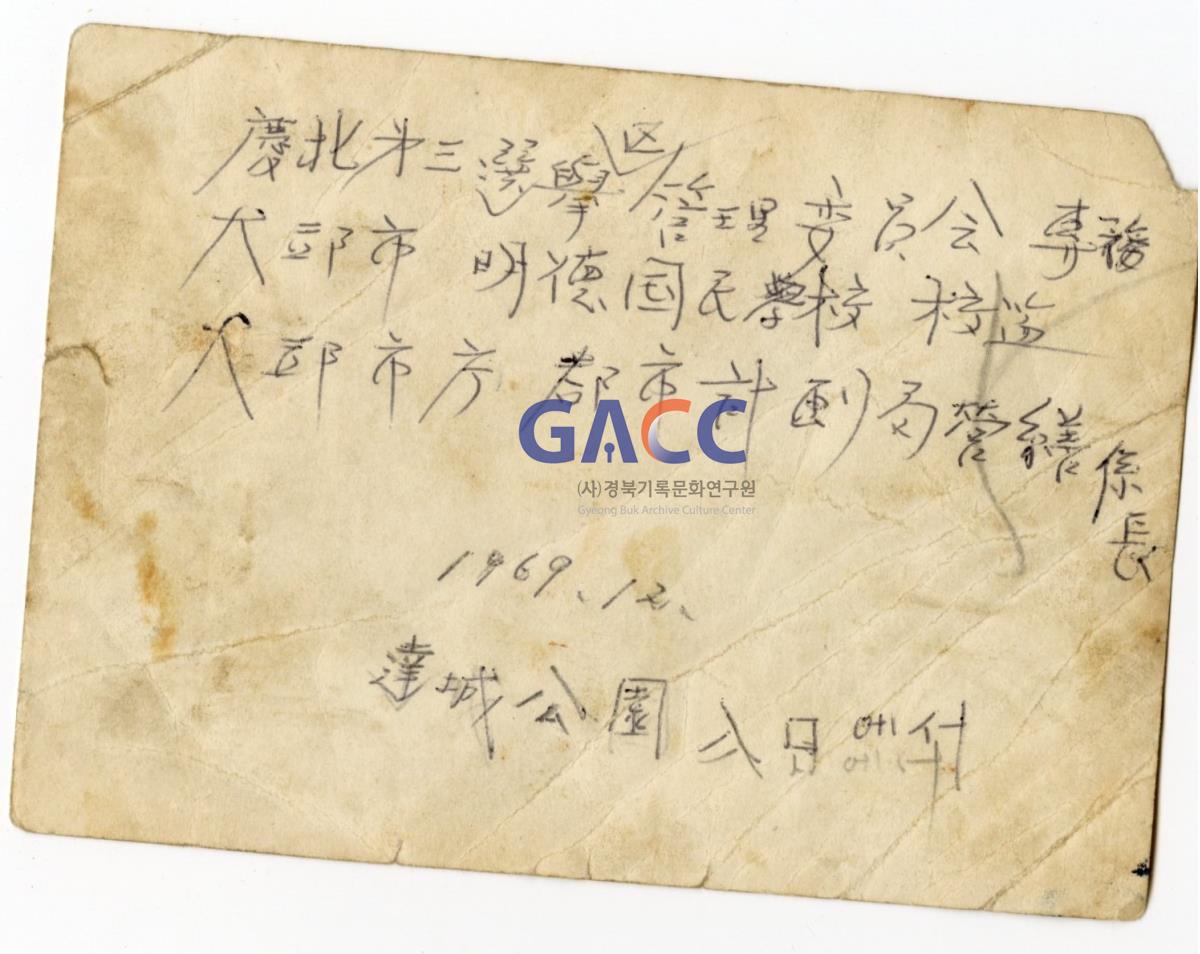 慶北第三選擧区管理委員会 専務
大邱市 明德国民學校 校監
大邱市庁 都市計画局 营繕係長
GACC
(사)경북기록문화연구원
Gyeong Buk Archive Culture Center
1969.12.
達城公園 入口에서